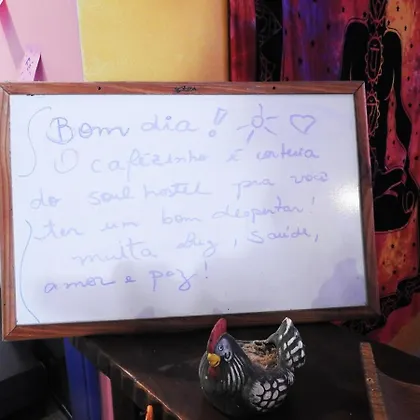 Bom dia!
O cafézinho é cortesia
do soul hostel pra você
ter um bom despertar!
muita luz, saúde,
amor e paz!